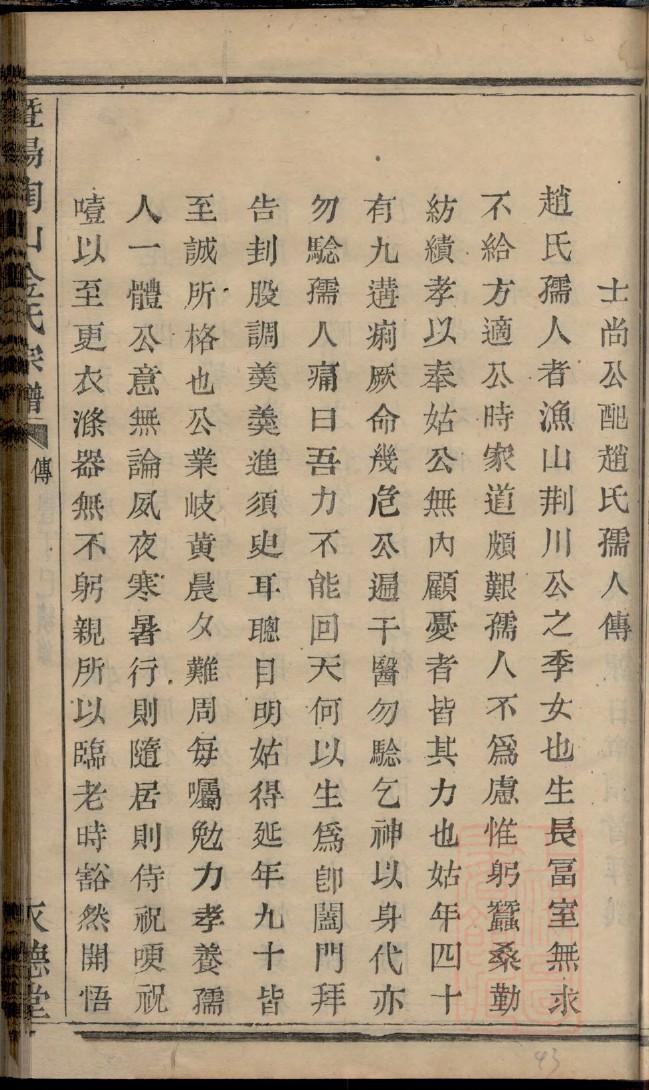 士尚公配趙氏孺人傳
趙氏孺人者漁山荆川公之季女也生長冨室無求
不給方適公時家道頗艱孺人不爲慮惟躬蠶桑勤
紡績孝以奉姑公無內顧憂者皆其力也姑年四十
有九遘痢厥命幾危公遍干醫勿騐乞神以身代亦
勿騐孺人痛曰吾力不能回天何以生爲卽闔門拜
告刲股調羮羮進須臾耳聰目明姑得延年九十皆
至誠所格也公業岐黄晨夕難周每囑勉力孝養孺
人一體公意無論夙夜寒暑行則隨居則侍祝哽祝
噎以至更衣滌器無不躬親所以臨老時豁然開悟
暨陽陶山金氏宗譜
傳
43